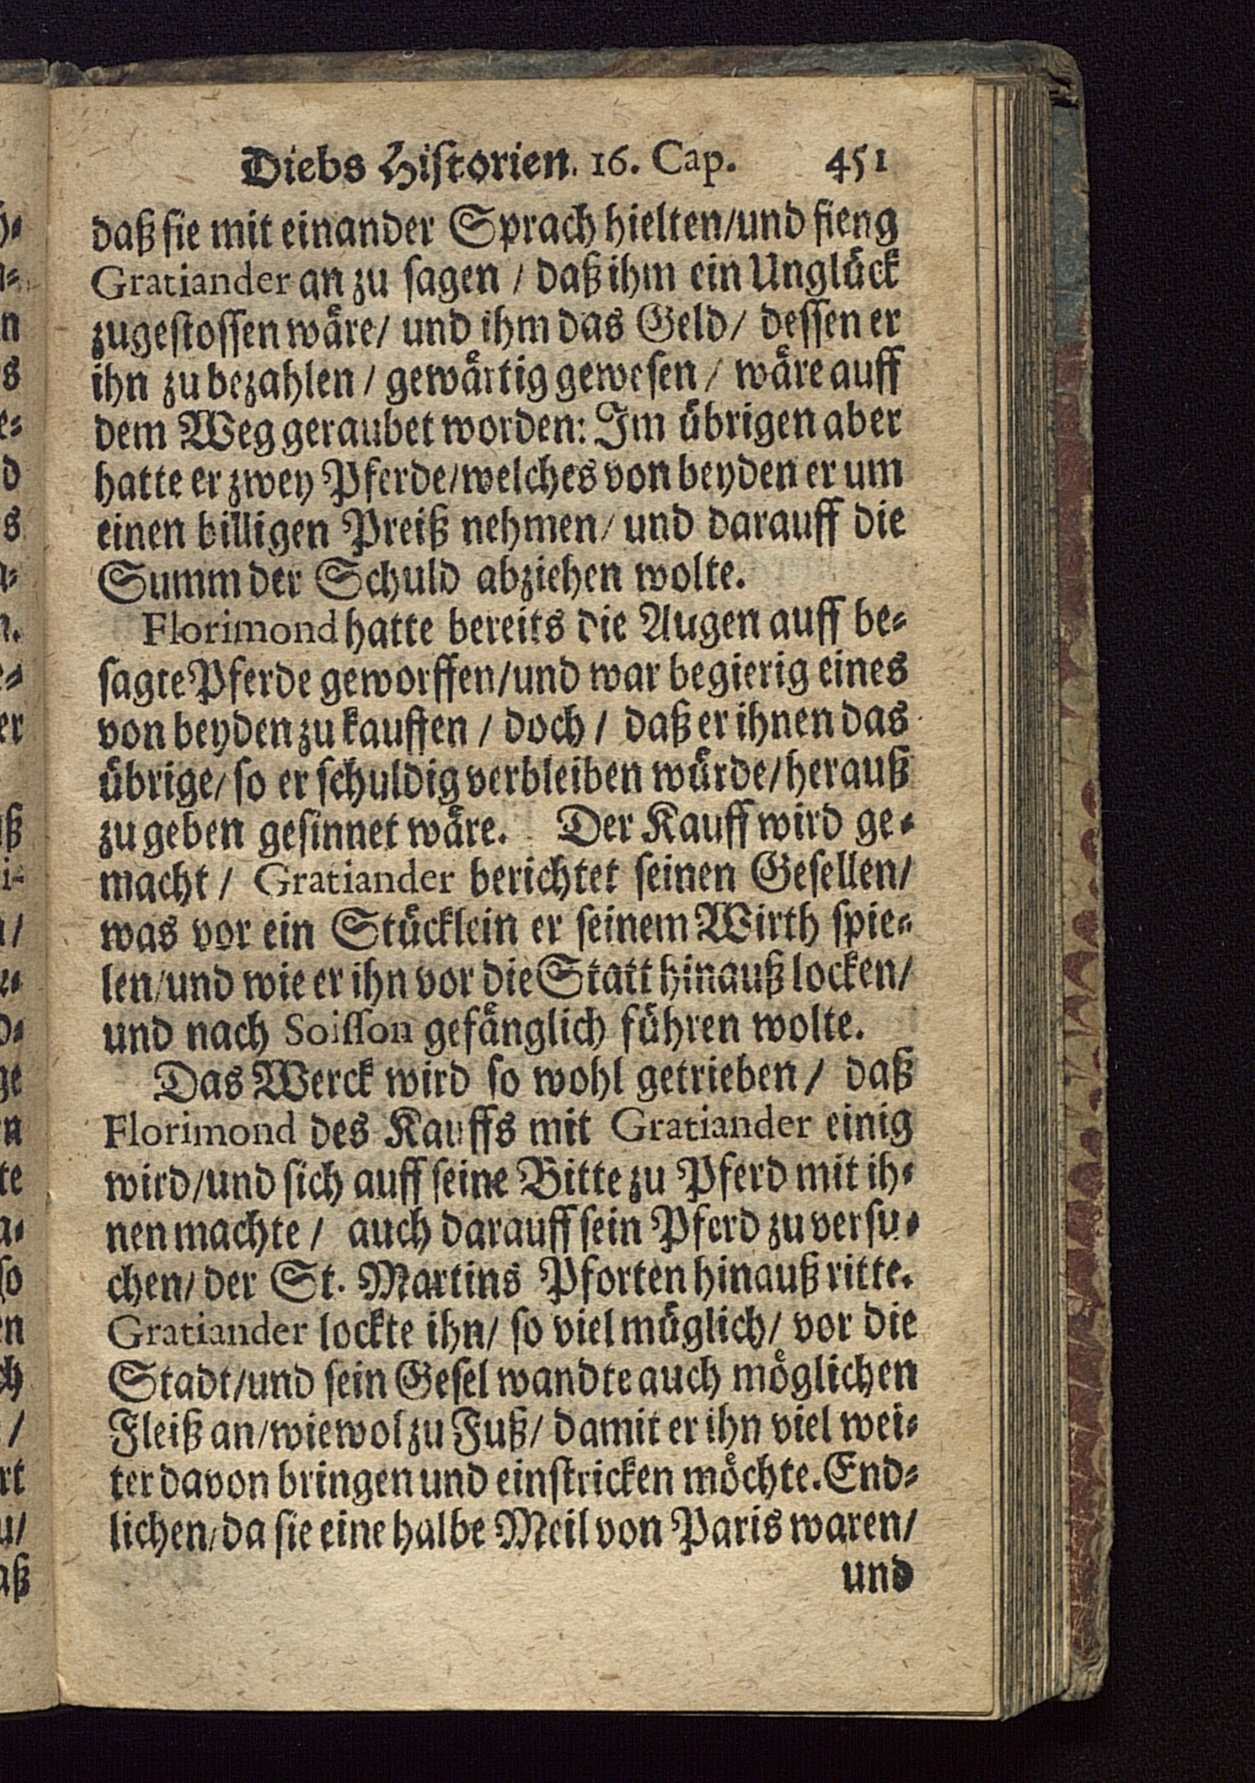 Diebs Historien. 16. Cap. 451
daß sie mit einander Sprach hielten/und fieng
Gratiander an zu sagen / daß ihm ein Unglück
zugestossen wäre/ und ihm das Geld/ dessen er
ihn zu bezahlen / gewärtig gewesen / wäre auff
dem Weg geraubet worden: Im übrigen aber
hatte er zwey Pferde/welches von beyden er um
einen billigen Preiß nehmen/ und darauff die
Summ der Schuld abziehen wolte.
Florimond hatte bereits die Augen auff be-
sagte Pferde geworffen/und war begierig eines
von beyden zu kauffen / doch / daß er ihnen das
übrige/ so er schuldig verbleiben würde/herauß
zu geben gesinnet wäre. Der Kauff wird ge-
macht / Gratiander berichtet seinen Gesellen/
was vor ein Stücklein er seinem Wirth spie-
len/und wie er ihn vor die Statt hinauß locken/
und nach Soisson gefänglich führen wolte.
Das Werck wird so wohl getrieben / daß
Florimond des Kauffs mit Gratiander einig
wird/und sich auff seine Bitte zu Pferd mit ih-
nen machte / auch darauff sein Pferd zu versu-
chen/ der St. Martins Pforten hinauß ritte.
Gratiander lockte ihn/ so viel müglich/ vor die
Stadt/und sein Gesel wandte auch möglichen
Fleiß an/wiewol zu Fuß/ damit er ihn viel wei-
ter davon bringen und einstricken möchte. End-
lichen/da sie eine halbe Meil von Paris waren/
und